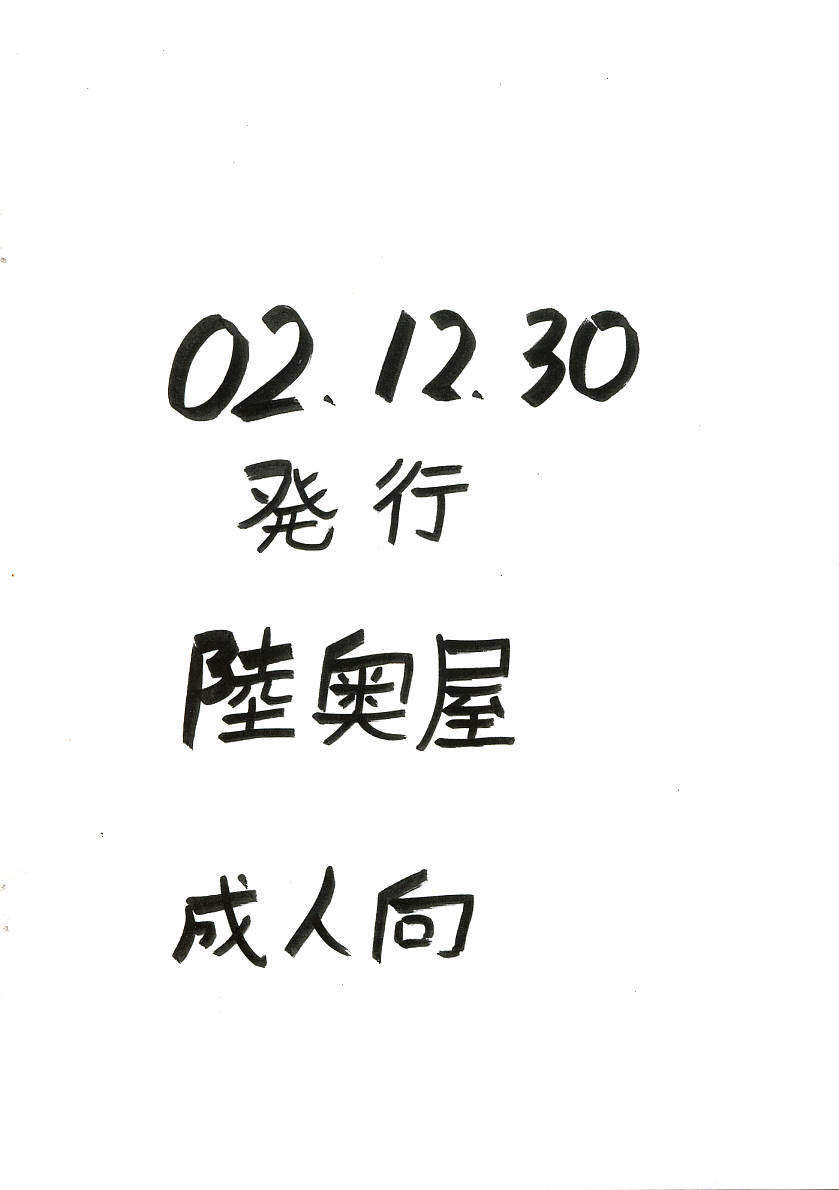 02.12.30
発行
陸奥屋
成人向